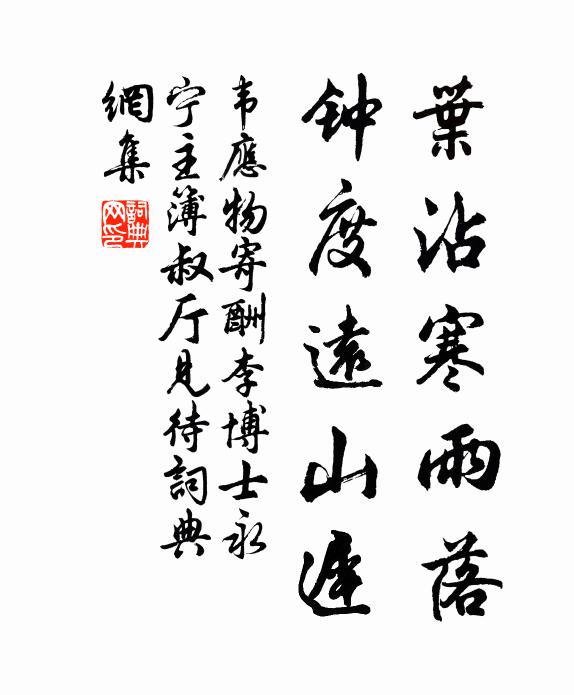 葉沾寒雨落
钟度遠山遲
韦應物寄酬李博士永
宁主簿叔厅見待詞典
網集
詞典網印